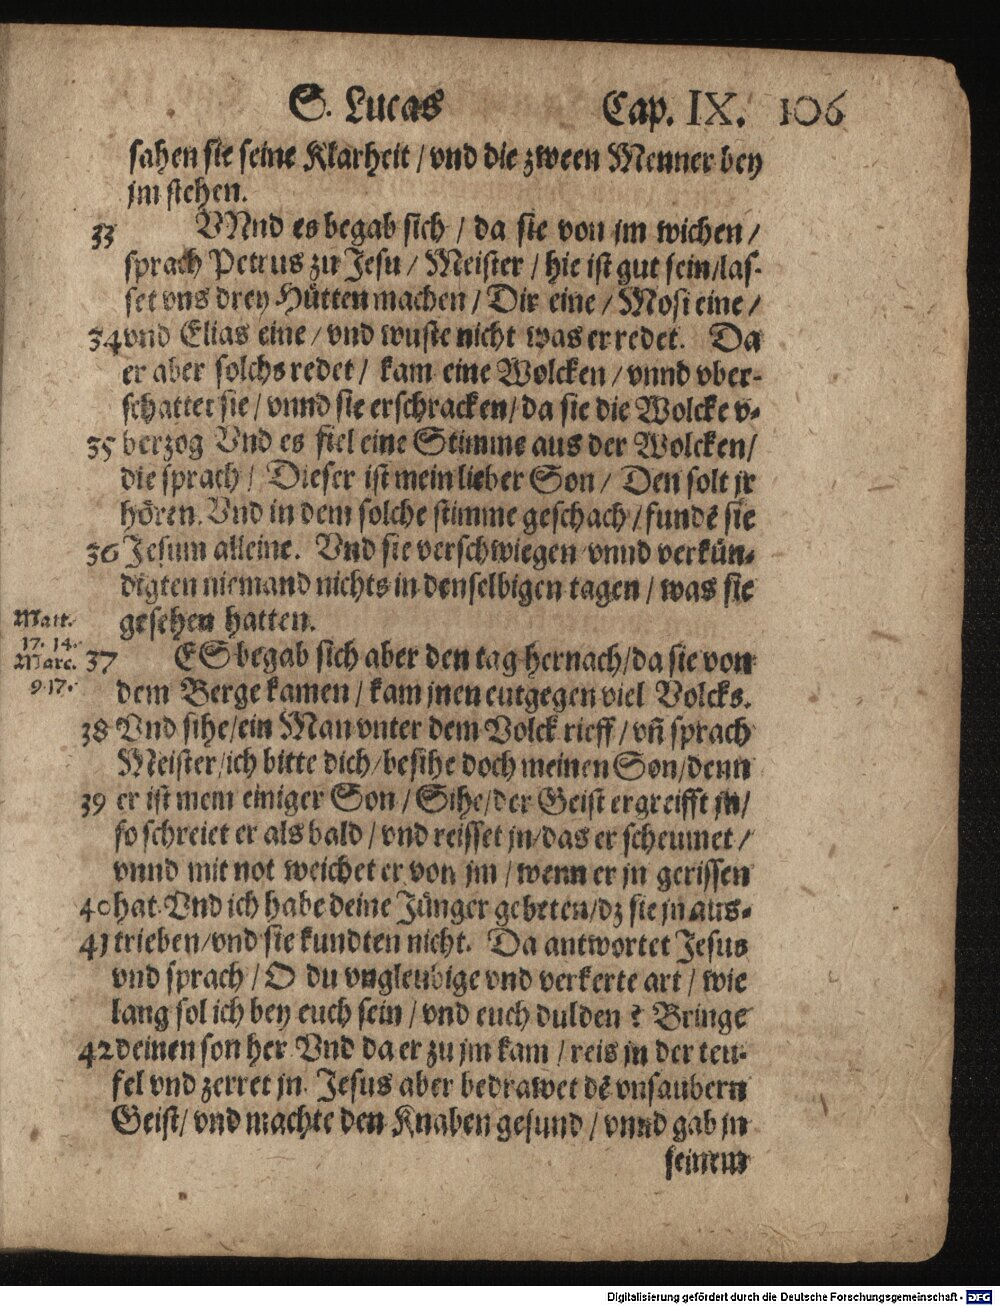 S. Lucas Cap. IX. 106
sahen sie seine Klarheit / vnd die zween Menner bey
jm stehen.
33 VNnd es begab sich / da sie von jm wichen /
sprach Petrus zu Jesu / Meister / hie ist gut sein / las-
set vns drey Hütten machen / Dir eine / Mosi eine /
34 vnd Elias eine / vnd wuste nicht was er redet. Da
er aber solchs redet / kam eine Wolcken / vnnd vber-
schattet sie / vnnd sie erschracken / da sie die Wolcke v-
35 berzog Vnd es fiel eine Stimme aus der Wolcken /
die sprach / Dieser ist mein lieber Son / Den solt jr
hören. Vnd in dem solche stimme geschach / fundē sie
36 Jesum alleine. Vnd sie verschwiegen vnnd verkün-
digten niemand nichts in denselbigen tagen / was sie
gesehen hatten.
Matt.
17. 14.
Marc.
9. 17.
37 ES begab sich aber den tag hernach / da sie von
dem Berge kamen / kam jnen eutgegen viel Volcks.
38 Vnd sihe / ein Man vnter dem Volck rieff / vñ sprach
Meister / ich bitte dich / besihe doch meinen Son / denn
39 er ist mein einiger Son / Sihe / der Geist ergreifft jn /
so schreiet er als bald / vnd reisset jn / das er scheumet /
vnnd mit not weichet er von jm / wenn er jn gerissen
40 hat. Vnd ich habe deine Jünger gebeten / dz sie jn aus-
41 trieben / vnd sie kundten nicht. Da antwortet Jesus
vnd sprach / O du vngleubige vnd verkerte art / wie
lang sol ich bey euch sein / vnd euch dulden? Bringe
42 deinen son her. Vnd da er zu jm kam / reis jn der teu-
fel vnd zerret jn. Jesus aber bedrawet dē vnsaubern
Geist / vnd machte den Knaben gesund / vnnd gab jn
seinem
Digitalisierung gefördert durch die Deutsche Forschungsgemeinschaft - DFG